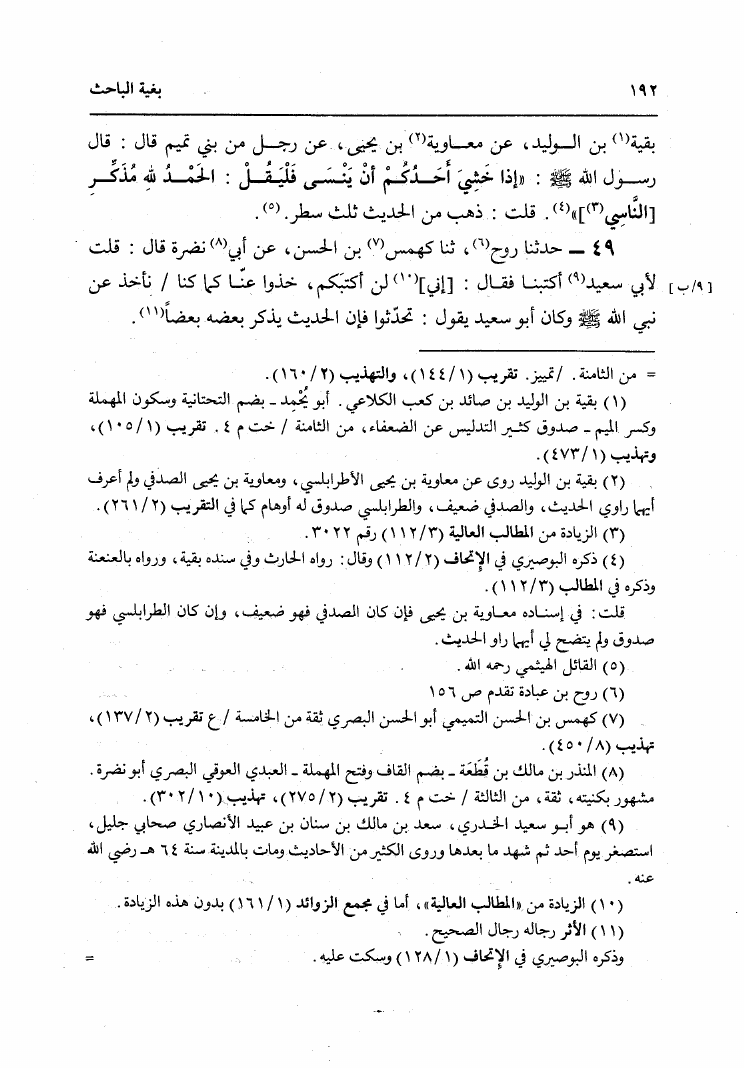 ١٩٢ بغية الباحث
بقية(١) بن الـوليد، عن معـاوية(٢) بن يحيى، عن رجـل من بني تميم قال : قال
رسـول الله ﷺ : «إذا خَشِيَ أَحَـدُكُـمْ أَنْ يَنْسَـى فَلْيَقُـلْ : الحَمْـدُ للهِ مُذَكِّـرِ
[النَّاسِي(٣)]»(٤). قلت : ذهب من الحديث ثلث سطر.(٥).
٤٩ ـ حدثنا روح(٦)، ثنا كهمس(٧) بن الحسن، عن أبي(٨) نضرة قال : قلت
لأبي سعيد(٩) أكتبنـا فقـال : [إني](١٠) لن أكتبَكم، خذوا عنّـا كما كنا / نأخذ عن [٩/ب]
نبي الله ﷺ وكان أبو سعيد يقول : تحدّثوا فإن الحديث يذكر بعضه بعضاً(١١).
= من الثامنة. /تمييز. تقريب (١/١٤٤)، والتهذيب (٢/١٦٠).
(١) بقية بن الوليد بن صائد بن كعب الكلاعي. أبو يُحْمِد ـ بضم التحتانية وسكون المهملة
وكسر الميم ـ صدوق كثـير التدليس عن الضعفاء، من الثامنة / خت م ٤. تقريب (١/١٠٥)،
وتهذيب (١/٤٧٣).
(٢) بقية بن الوليد روى عن معاوية بن يحيى الأطرابلسي، ومعاوية بن يحيى الصدفي ولم أعرف
أيهما راوي الحديث، والصدفي ضعيف، والطرابلسي صدوق له أوهام كما في التقريب (٢/٢٦١).
(٣) الزيادة من المطالب العالية (٣/١١٢) رقم ٣٠٢٢.
(٤) ذكره البوصيري في الإتحاف (٢/١١٢) وقال: رواه الحارث وفي سنده بقية، ورواه بالعنعنة
وذكره في المطالب (٣/١١٢).
قلت: في إسنـاده معـاوية بن يحيى فإن كان الصدفي فهو ضعيف، وإن كان الطرابلسي فهو
صدوق ولم يتضح لي أيهما راو الحديث.
(٥) القائل الهيثمي رحمه الله.
(٦) روح بن عبادة تقدم ص ١٥٦
(٧) كهمس بن الحسن التميمي أبو الحسن البصري ثقة من الخامسة / ع تقريب (٢/١٣٧)،
تهذيب (٨/٤٥٠).
(٨) المنذر بن مالك بن قُطَعَة ـ بضم القاف وفتح المهملة ـ العبدي العوقي البصري أبو نضرة.
مشهور بكنيته، ثقة، من الثالثة / خت م ٤. تقريب (٢/٢٧٥)، تهذيب (١٠/٣٠٢).
(٩) هو أبـو سعيد الخـدري، سعد بن مالك بن سنان بن عبيد الأنصاري صحابي جليل،
استصغر يوم أحد ثم شهد ما بعدها وروى الكثير من الأحاديث ومات بالمدينة سنة ٦٤ هـ رضي الله
عنه.
(١٠) الزيادة من «المطالب العالية»، أما في مجمع الزوائد (١/١٦١) بدون هذه الزيادة.
(١١) الأثر رجاله رجال الصحيح.
وذكره البوصيري في الإتحاف (١/١٢٨) وسكت عليه. =